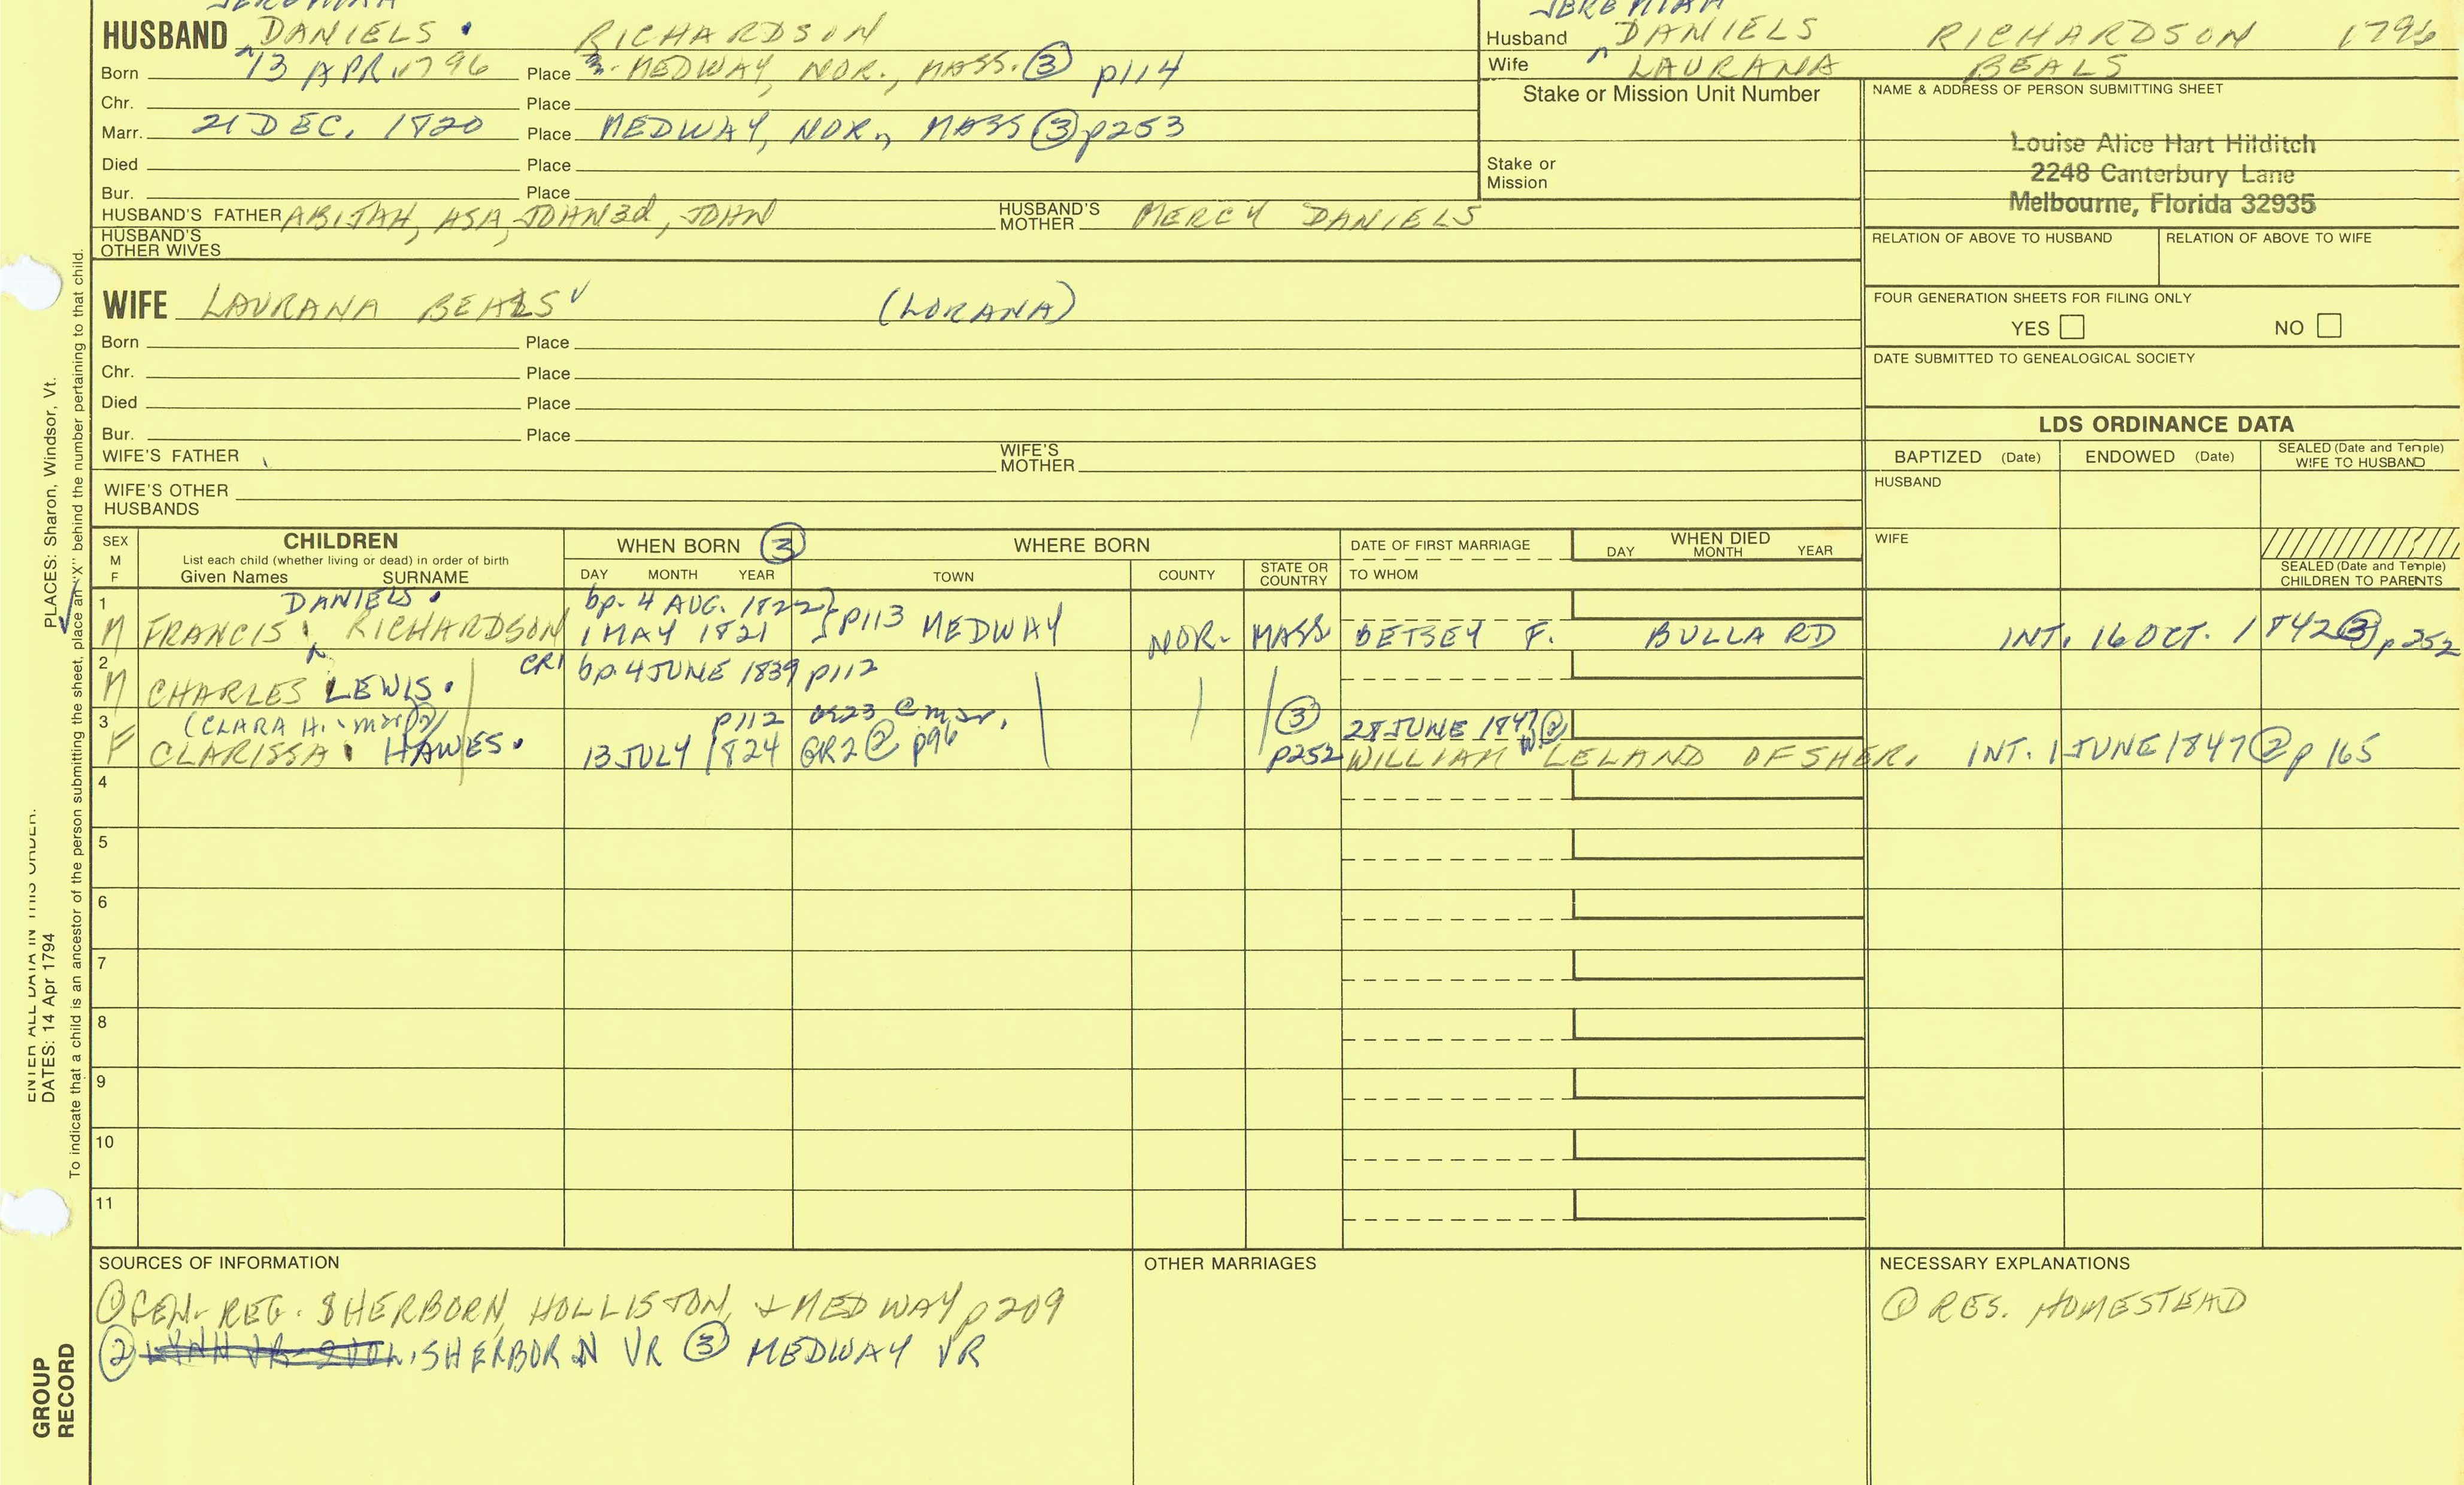 JEREMIAH
HUSBAND ^ DANIELS. RICHARDSON
Born 13 APR. 1796 Place MEDWAY, NOR., MASS. ③ p114
Chr. Place
Marr. 21 DEC. 1820 Place MEDWAY, NOR., MASS ③ p253
Died Place
Bur. Place
HUSBAND'S FATHER ABIJAH, ASA, JOHN 3d, JOHN HUSBAND'S MOTHER MERCY DANIELS
HUSBAND'S OTHER WIVES
JEREMIAH
Husband ^ DANIELS RICHARDSON 1796
Wife LAURANA BEALS
Stake or Mission Unit Number
Stake or Mission
NAME & ADDRESS OF PERSON SUBMITTING SHEET
Louise Alice Hart Hilditch
2248 Canterbury Lane
Melbourne, Florida 32935
RELATION OF ABOVE TO HUSBAND RELATION OF ABOVE TO WIFE
WIFE LAURANA BEALS √ (LORANA)
Born Place
Chr. Place
Died Place
Bur. Place
WIFE'S FATHER WIFE'S MOTHER
WIFE'S OTHER HUSBANDS
FOUR GENERATION SHEETS FOR FILING ONLY
YES NO
DATE SUBMITTED TO GENEALOGICAL SOCIETY
LDS ORDINANCE DATA
BAPTIZED (Date) ENDOWED (Date) SEALED (Date and Temple) WIFE TO HUSBAND
HUSBAND
WIFE
SEALED (Date and Temple) CHILDREN TO PARENTS
SEX M F CHILDREN WHEN BORN ③ WHERE BORN DATE OF FIRST MARRIAGE WHEN DIED
List each child (whether living or dead) in order of birth
Given Names SURNAME DAY MONTH YEAR TOWN COUNTY STATE OR COUNTRY TO WHOM DAY MONTH YEAR
1 DANIELS. bp. 4 AUG. 1822
M FRANCIS ^ RICHARDSON 1 MAY 1821 } p113 MEDWAY NOR. MASS BETSEY F. BULLARD INT. 16 OCT. 1842 ③ p252
2 CR1 bp. 4 JUNE 1839 p112
M CHARLES LEWIS.
3 (CLARA H. - mar ②) p112 ae23 @ mar. ③ 28 JUNE 1847 ②
F CLARISSA HAWES. 13 JULY 1824 GR2 ② p96 p252 WILLIAM W. LELAND OF SHER. INT. 1 JUNE 1847 ② p165
4
5
6
7
8
9
10
11
SOURCES OF INFORMATION
① GEN. REG. SHERBORN, HOLLISTON, & MEDWAY p209
② SHERBORN VR ③ MEDWAY VR
OTHER MARRIAGES
NECESSARY EXPLANATIONS
① RES. HOMESTEAD
ENTER ALL DATA IN THIS ORDER.
DATES: 14 Apr 1794
PLACES: Sharon, Windsor, Vt.
To indicate that a child is an ancestor of the person submitting the sheet, place an "X" behind the number pertaining to that child.
GROUP
RECORD